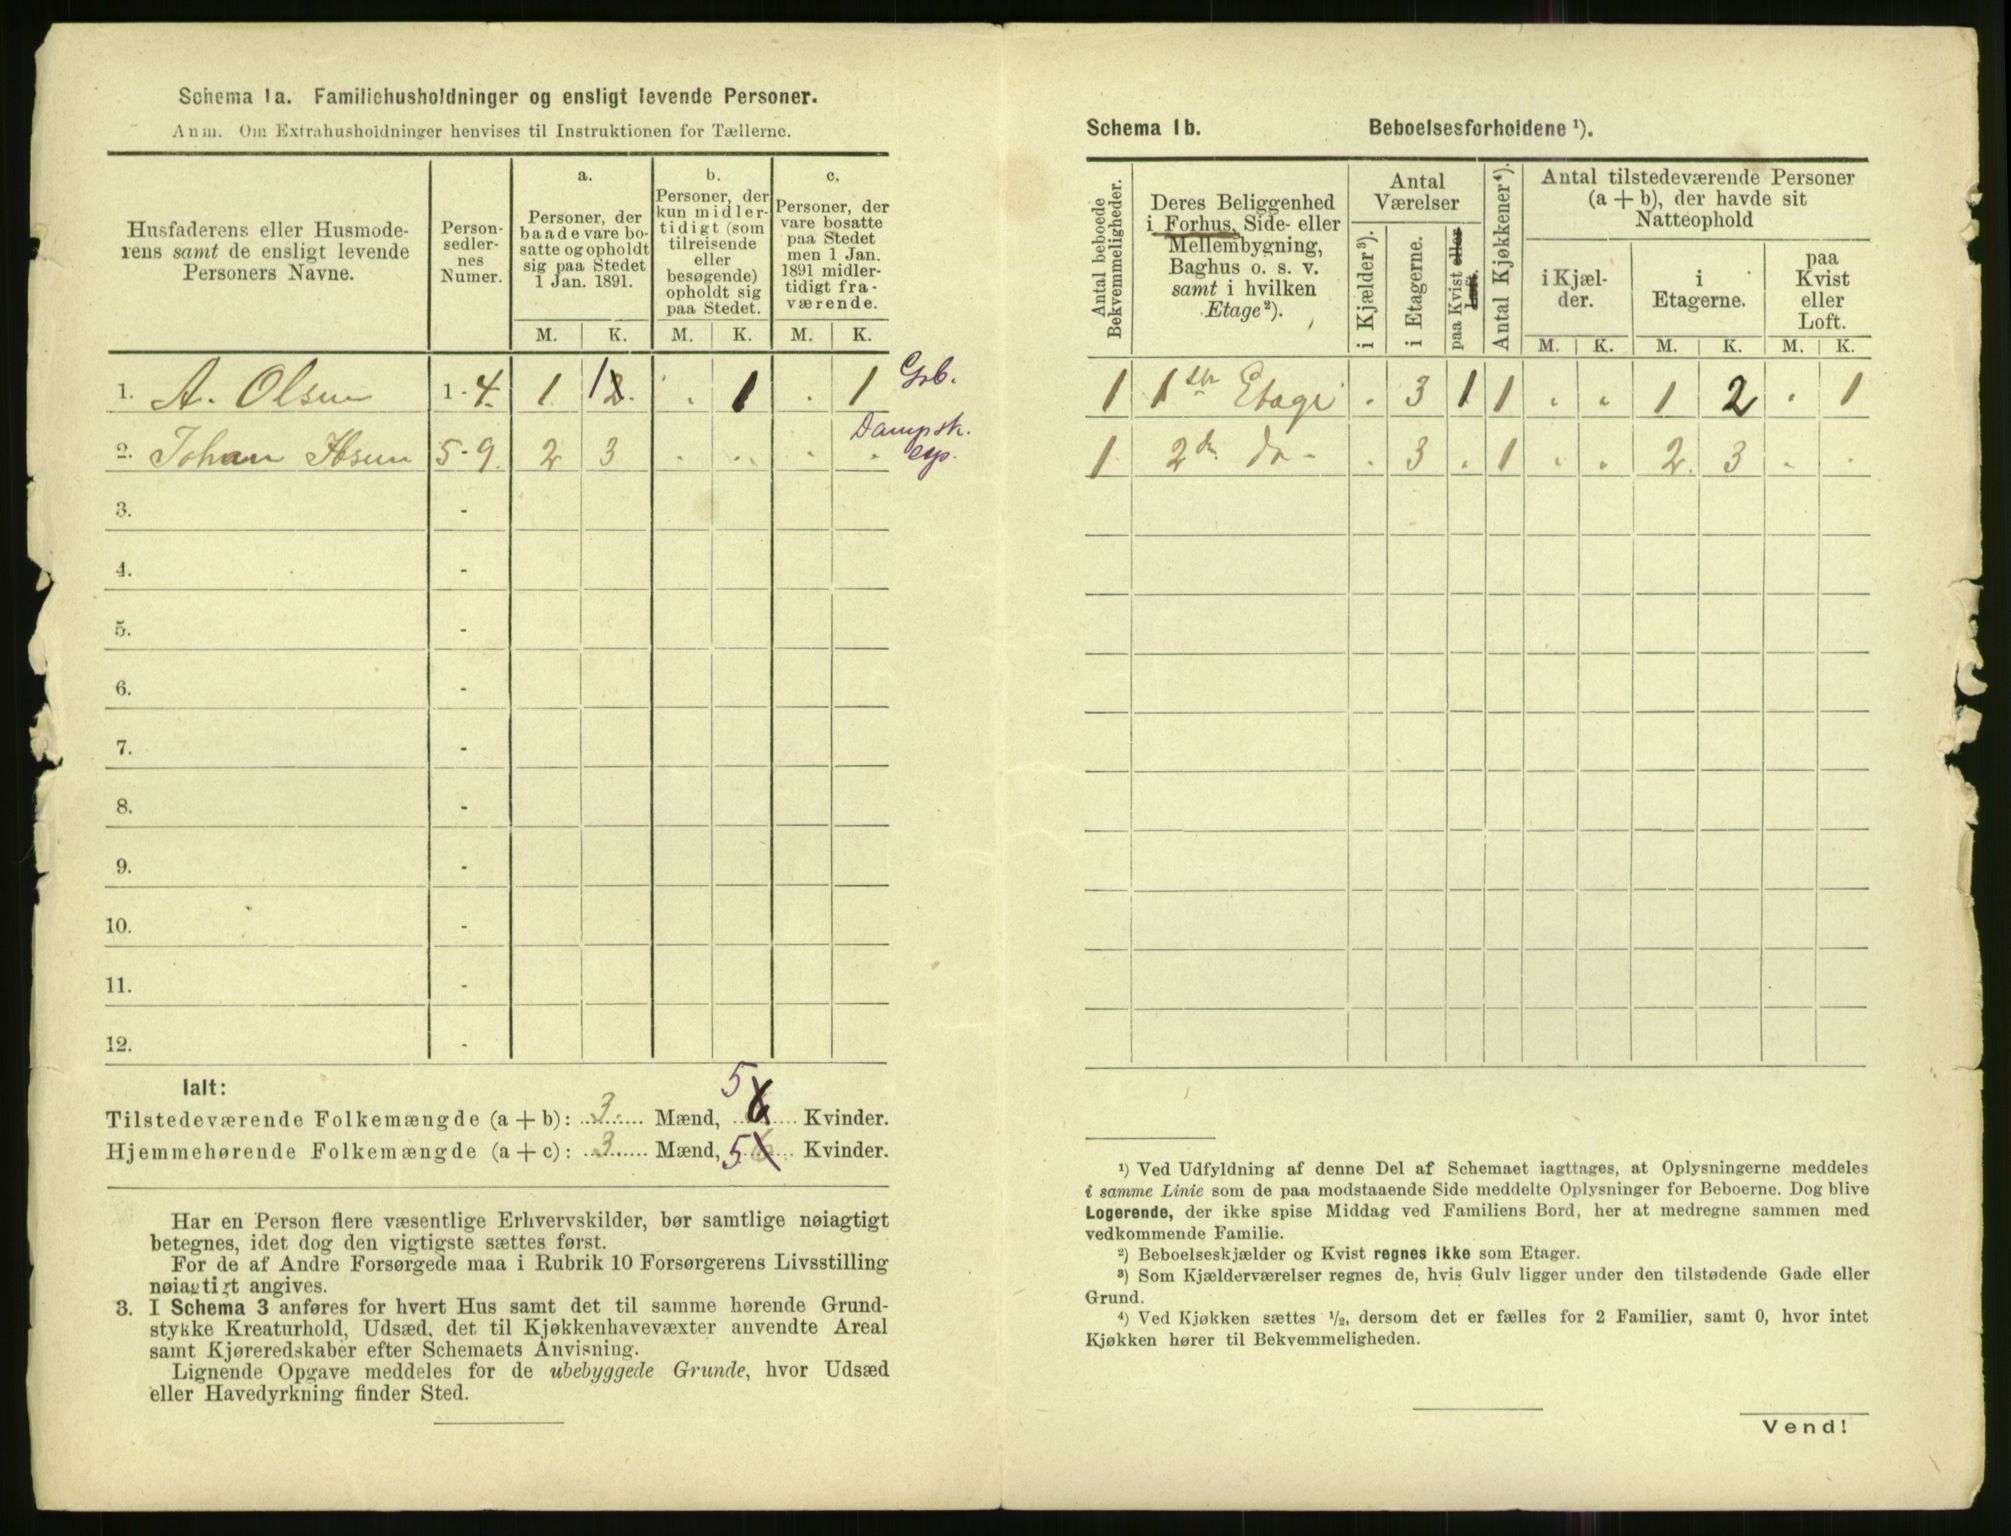 Schema 1a. Familiehusholdninger og ensligt levende Personer.
Anm. Om Extrahusholdninger henvises til Instruktionen for Tællerne.
Husfaderens eller Husmoderens samt de ensligt levende Personers Navne.
Personsedlernes Numer.
a.
Personer, der baade vare bosatte og opholdt sig paa Stedet 1 Jan. 1891.
b.
Personer, der kun midlertidigt (som tilreisende eller besøgende) opholdt sig paa Stedet.
c.
Personer, der vare bosatte paa Stedet men 1 Jan. 1891 midlertidigt fraværende.
M. K. M. K. M. K.
1. A. Olsen 1-4. 1 1 2. . 1 . 1 Grb.
2. Johan Ibsen 5-9. 2 3 . .. . . Dampsk. exp.
3. -
4. -
5. -
6. -
7. -
8. -
9. -
10. -
11. -
12. -
Ialt:
Tilstedeværende Folkemængde (a + b): 3. Mænd, 5 6 Kvinder.
Hjemmehørende Folkemængde (a + c): 3 Mænd, 5 6 Kvinder.
Har en Person flere væsentlige Erhvervskilder, bør samtlige nøiagtigt
betegnes, idet dog den vigtigste sættes først.
For de af Andre Forsørgede maa i Rubrik 10 Forsørgerens Livsstilling
nøiagtigt angives.
3. I Schema 3 anføres for hvert Hus samt det til samme hørende Grund-
stykke Kreaturhold, Udsæd, det til Kjøkkenhavevæxter anvendte Areal
samt Kjøreredskaber efter Schemaets Anvisning.
Lignende Opgave meddeles for de ubebyggede Grunde, hvor Udsæd
eller Havedyrkning finder Sted.
Schema 1b. Beboelsesforholdene ¹).
Antal beboede Bekvemmeligheder.
Deres Beliggenhed i Forhus, Side- eller Mellembygning, Baghus o. s. v. samt i hvilken Etage²).
Antal Værelser
i Kjælder³).
i Etagerne.
paa Kvist eller Loft.
Antal Kjøkkener⁴).
Antal tilstedeværende Personer (a + b), der havde sit Natteophold
i Kjælder.
i Etagerne.
paa Kvist eller Loft.
M. K. M. K. M. K.
1 1ste Etage . 3 1 1 . . 1 2 . 1
1 2den do - . 3 . 1 . . 2. 3 . .
¹) Ved Udfyldning af denne Del af Schemaet iagttages, at Oplysningerne meddeles
i samme Linie som de paa modstaaende Side meddelte Oplysninger for Beboerne. Dog blive
Logerende, der ikke spise Middag ved Familiens Bord, her at medregne sammen med
vedkommende Familie.
²) Beboelseskjælder og Kvist regnes ikke som Etager.
³) Som Kjælderværelser regnes de, hvis Gulv ligger under den tilstødende Gade eller
Grund.
⁴) Ved Kjøkken sættes ½, dersom det er fælles for 2 Familier, samt 0, hvor intet
Kjøkken hører til Bekvemmeligheden.
Vend!